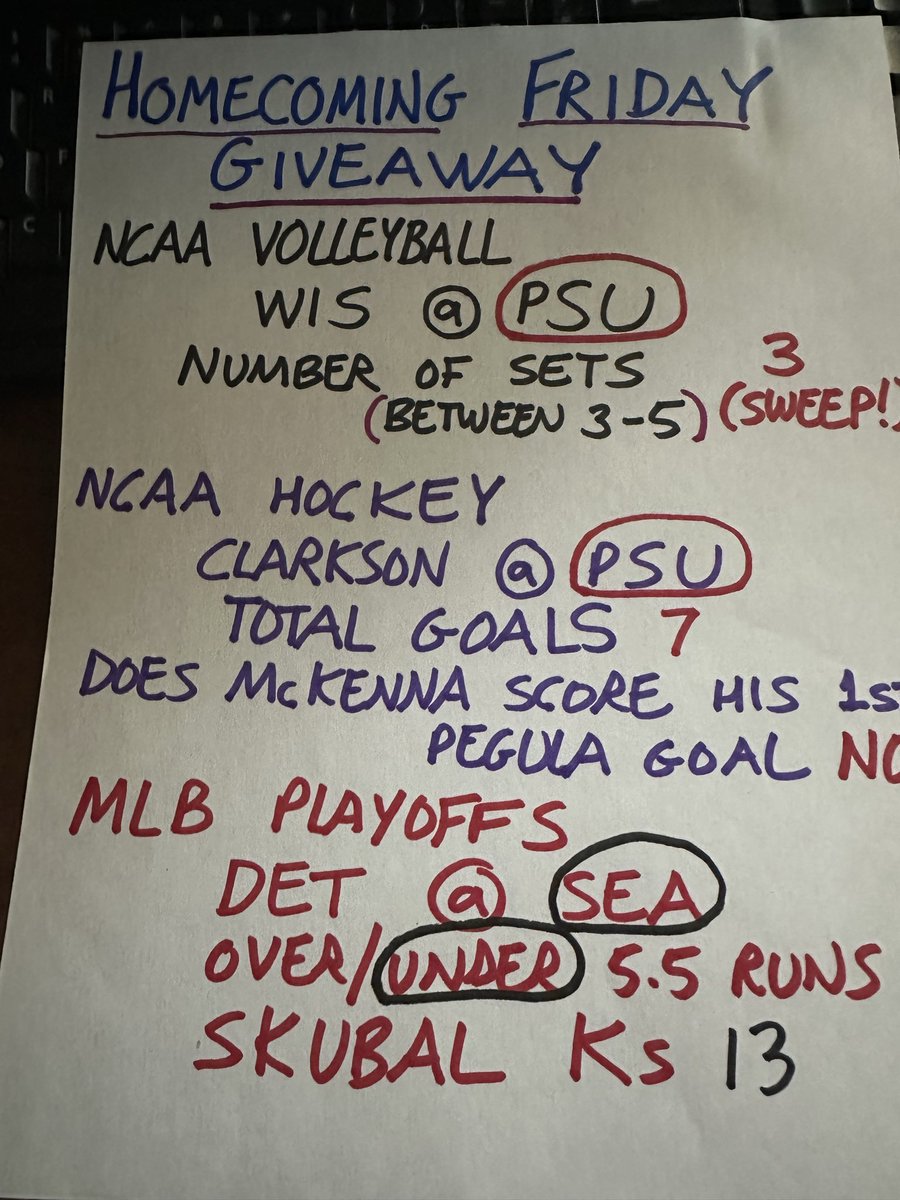 HOMECOMING FRIDAY
GIVEAWAY
NCAA VOLLEYBALL
WIS @ PSU
NUMBER OF SETS 3
(BETWEEN 3-5) (SWEEP!)
NCAA HOCKEY
CLARKSON @ PSU
TOTAL GOALS 7
DOES McKENNA SCORE HIS 1st
PEGULA GOAL NO
MLB PLAYOFFS
DET @ SEA
OVER/UNDER 5.5 RUNS
SKUBAL Ks 13